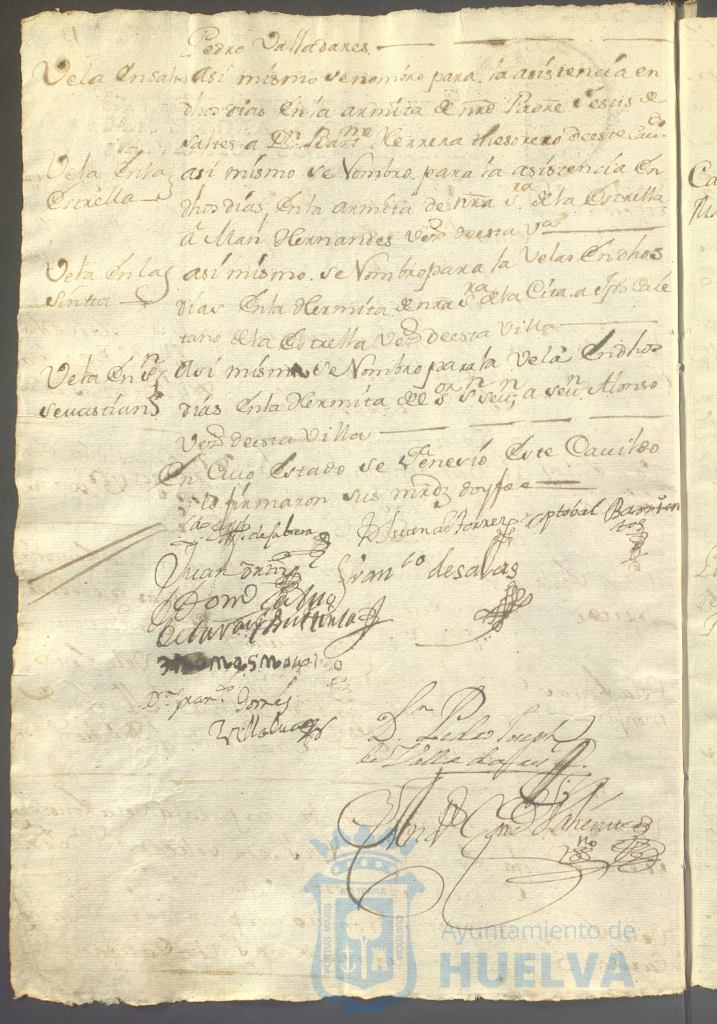 Pedro Valladares
Vela En sal
asi mismo se nombro para la asistencia en
dhos dias En la armita de nro Padre Jesus de
saltes a Dn Bartme Herrera thesorero de este Cavdo
Vela En la
Estrella
asi mismo se Nombro para la asistencia En
dhos dias, En la armita de nra sra de la Estrella
a Man Hernandes vezo de esta va
Vela En la
Sintta
asi mismo se Nombro para la Vela En dhos
dias En la Hermita de nra sra de la Cita a
tano de la Estrella vezo de esta villa
Vela En Sn
sevastian
Asi mismo se Nombro para la Vela En dhos
dias En la Hermita del sor sn seun a seun Alonso
vezo de esta Villa
En Cuio Estado se Fenesio Este Cavildo
lo firmaron sus mrdz doy fee
de Cabrera
Dn Juan de Torres
Xptobal Barrien
tos
Juan
Franco de salas
Domo
Octavio
Dn Franco Gomes
Villalva
Dn Pedro Joseph
de Villa
PORTUS MARIS
ET TERRAE
CUSTODIA
Ayuntamiento de
HUELVA